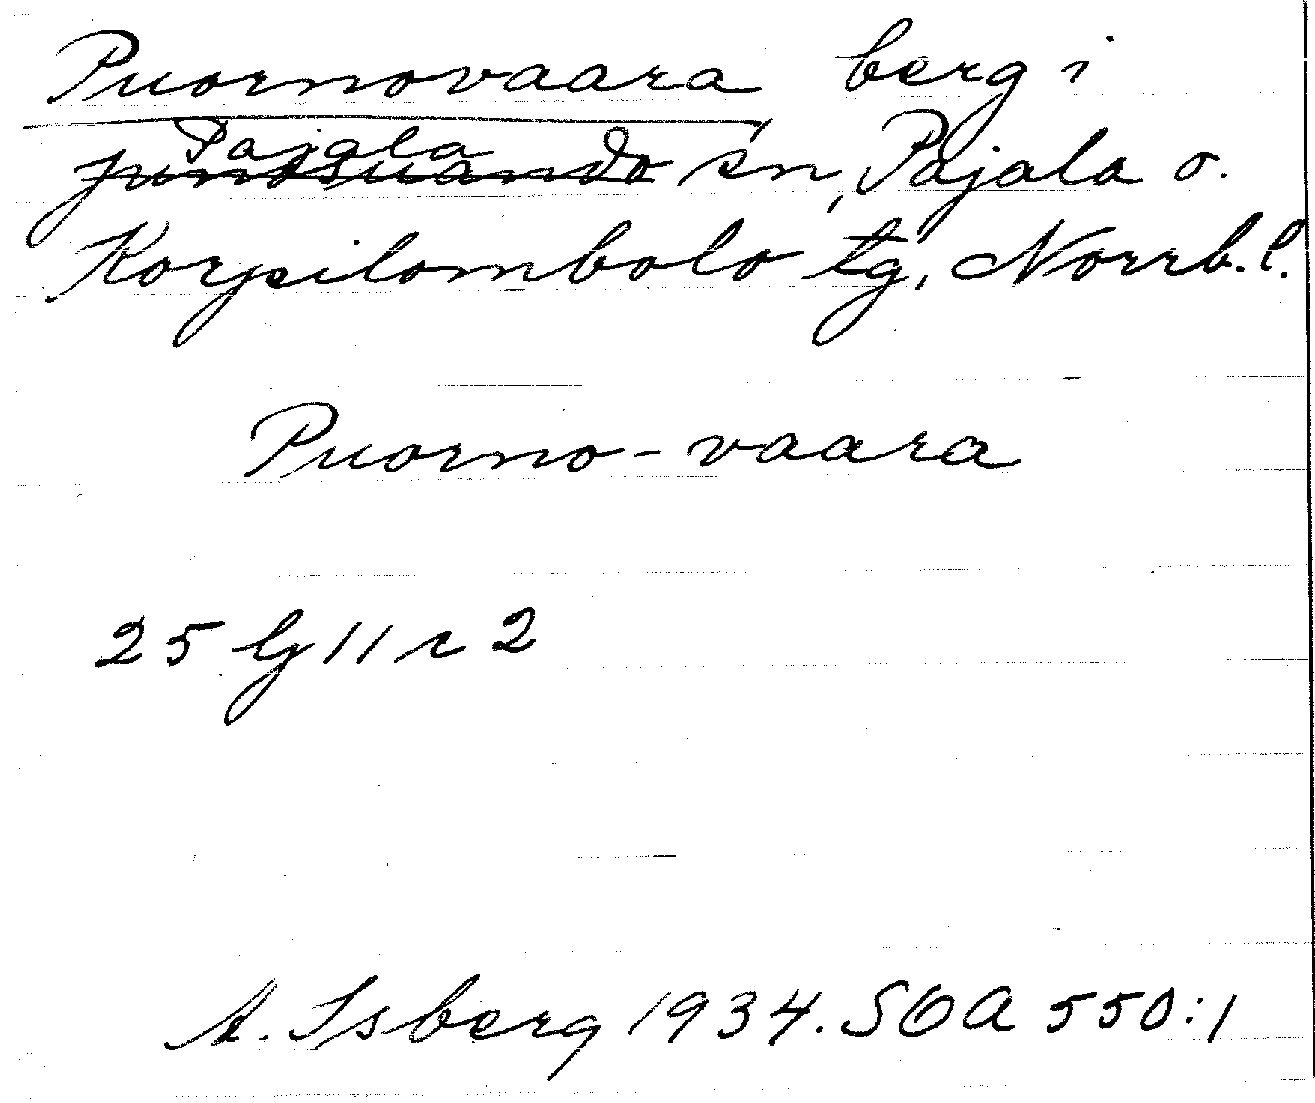 Puornovaara berg i
Pajala
Junosuando sn, Pajala o.
Korpilombolo tg, Norrb. l.
Puorno-vaara
25 G 11 r 2
A. Isberg 1934. SOA 550:1